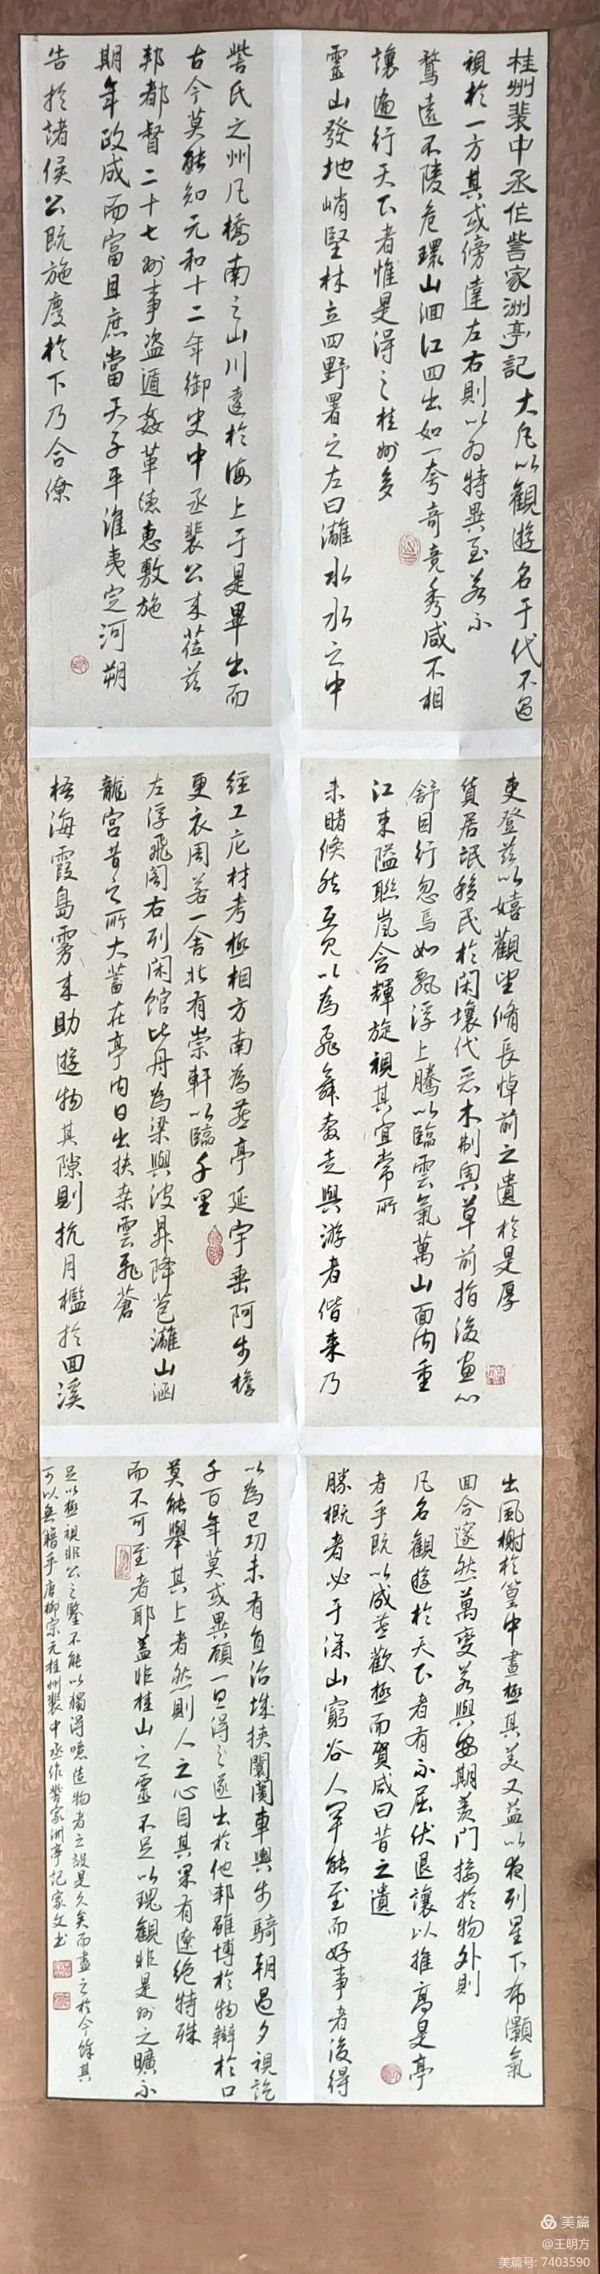 桂州裴中丞作訾家洲亭記 大凡以觀遊名于代不過
視於一方其或傍達左右則以為特異至若不
騖遠不陵危環山洄江四出如一夸奇竞秀咸不相
讓遍行天下者惟是得之桂州多
靈山發地峭堅林立四野署之左曰灕水水之中
訾氏之州凡橋南之山川達於海上于是畢出而
古今莫能知元和十二年御史中丞裴公来莅兹
邦都督二十七州事盗遁奸革德惠敷施
期年政成而富且庶當天子平淮夷定河朔
告於諸侯公既施慶於下乃合僚
吏登兹以嬉觀望攸長悼前之遺於是厚
貨居氓移民於闲壤代恶木制奥草前指後畫心
舒目行忽焉如飘浮上騰以臨雲氣萬山面内重
江東隘聯嵐含輝旋視其宜常所
未睹倏然互見以為飛舞奔走與游者偕来乃
經工庀材考極相方南為燕亭延宇垂阿步檐
更衣周若一舍北有崇軒以臨千里
左浮飛阁右列闲馆比舟為梁與波昇降苞灕山涵
龍宫昔之所大蓄在亭内日出扶桑雲飛蒼
梧海霞島雾来助遊物其隙則抗月檻於回溪
出風榭於篁中晝極其美又益以夜列星下布灝氣
回合邃然萬变若與安期羡門接於物外則
凡名觀遊於天下者有不屈伏退讓以推高是亭
者乎既以成燕歡極而贺咸曰昔之遺
勝概者必于深山窮谷人罕能至而好事者後得
以為己功未有直治城挟闤闠車輿步騎朝過夕視訖
千百年莫或異顧一旦得之遂出於他邦雖博於物辯於口
莫能舉其上者然則人之心目其果有遼绝特殊
而不可至者耶盖非桂山之靈不足以瑰觀非是州之曠不
足以極視非公之鑒不能以獨得噫造物者之設是久矣而盡之於今余其
可以無籍乎唐柳宗元桂州裴中丞作訾家洲亭記家文书
美篇
@王明方
美篇号: 7403590